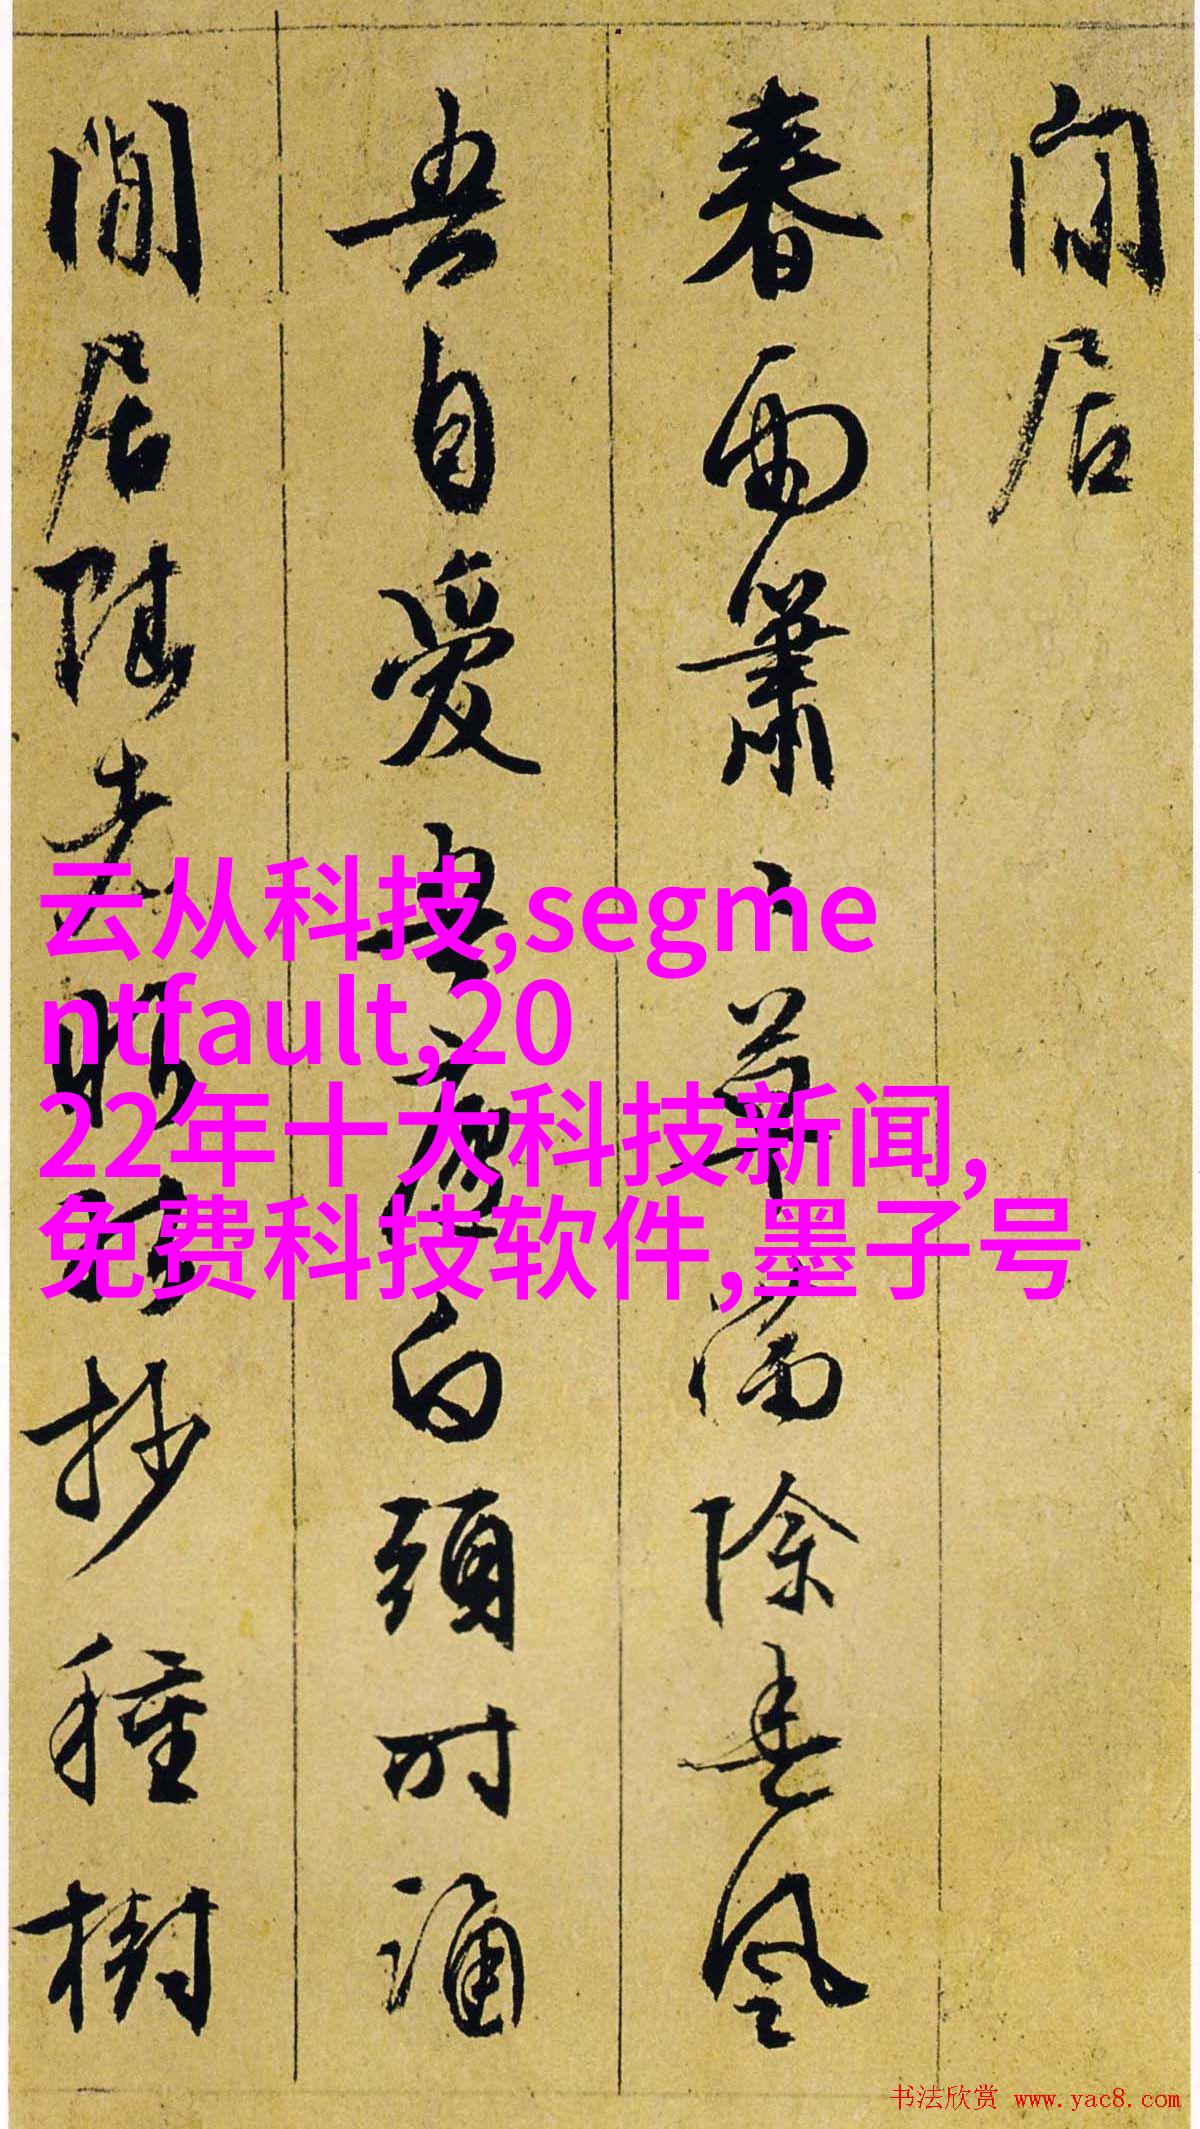 闲居
春雨蕭々草滿除春風
吾自愛吾廬白頭时誦
閒居賦老眼时抄種樹
云从科技,segme
ntfault,20
22年十大科技新闻,
免费科技软件,墨子号
书法欣赏 www.yac8.com